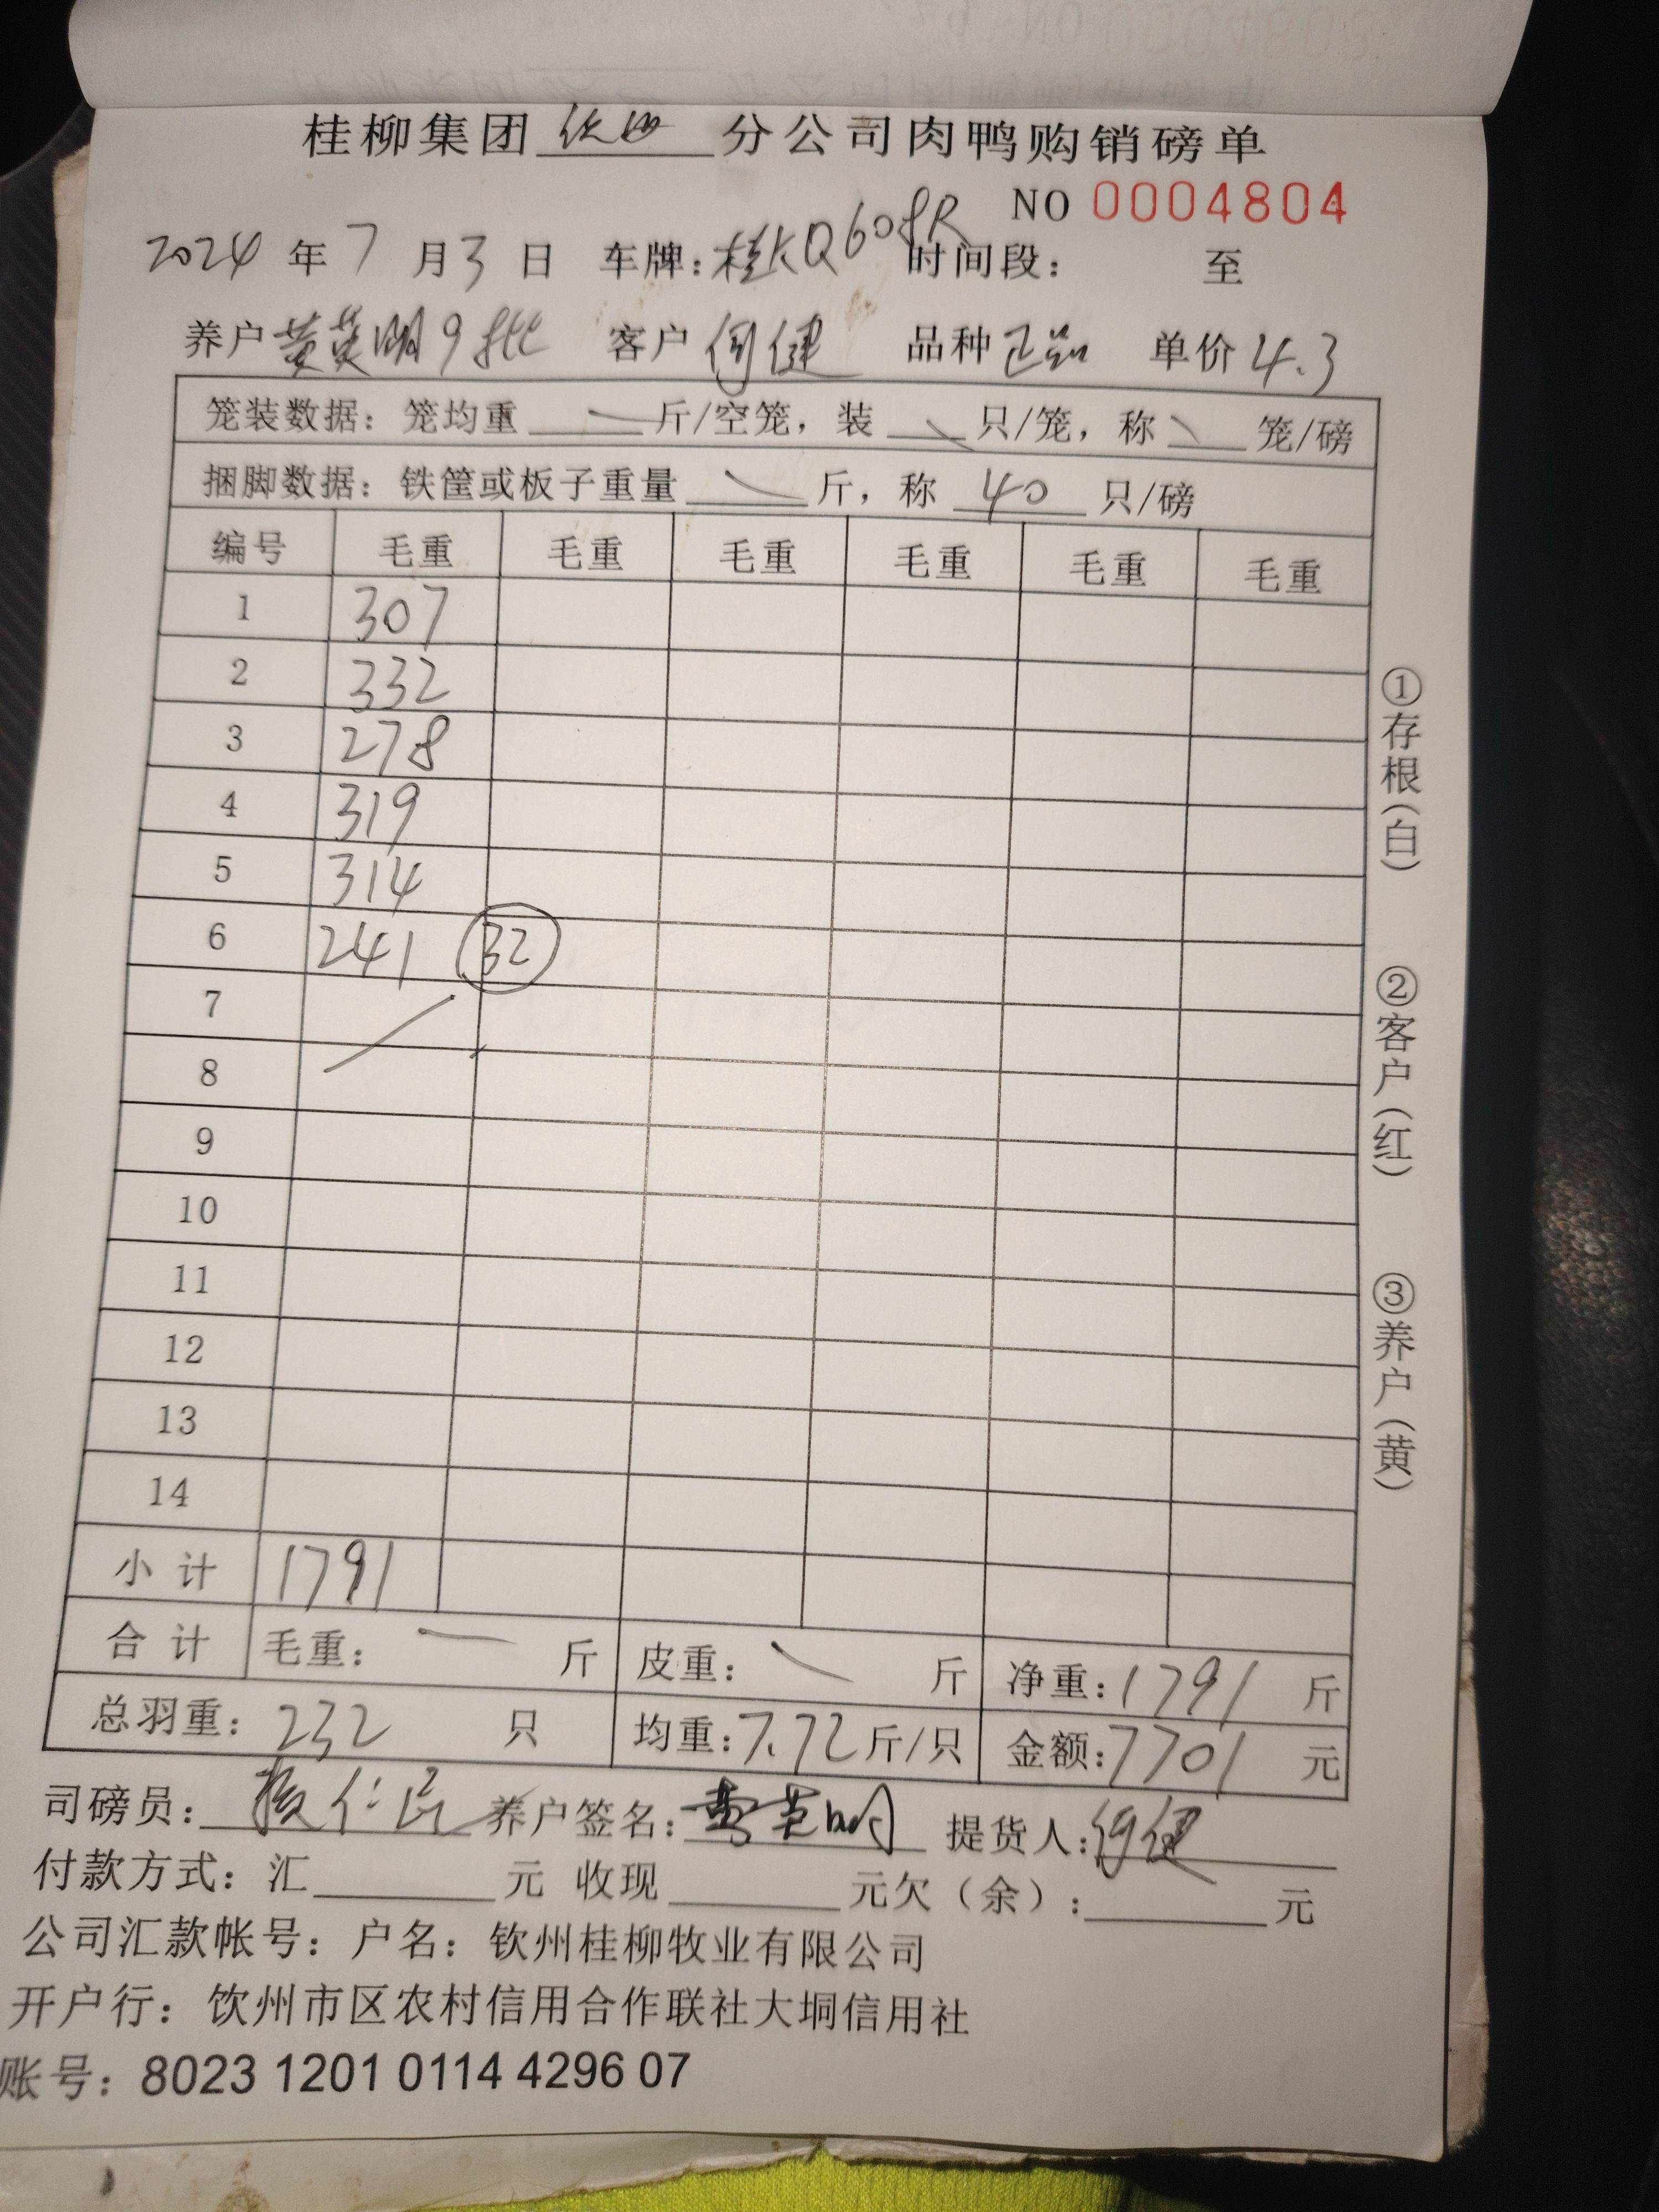 桂柳集团 钦州 分公司肉鸭购销磅单
NO 0004804
2024 年 7 月 3 日 车牌: 时间段: 至
养户 黄英明9批 客户 何健 品种 单价 4.3
笼装数据: 笼均重 斤/空笼, 装 只/笼, 称 笼/磅
捆脚数据: 铁筐或板子重量 斤, 称 40 只/磅
编号 毛重 毛重 毛重 毛重 毛重 毛重
1 307
2 332
3 278
4 319
5 314
6 241 32
7
8
9
10
11
12
13
14
小计 1791
合计 毛重: 斤 皮重: 斤 净重: 1791 斤
总羽重: 232 只 均重: 7.72 斤/只 金额: 7701 元
司磅员: 养户签名: 黄英明 提货人: 何健
付款方式: 汇 元 收现 元欠(余): 元
公司汇款帐号: 户名: 钦州桂柳牧业有限公司
开户行: 饮州市区农村信用合作联社大垌信用社
账号: 8023 1201 0114 4296 07
①存根(白)
②客户(红)
③养户(黄)